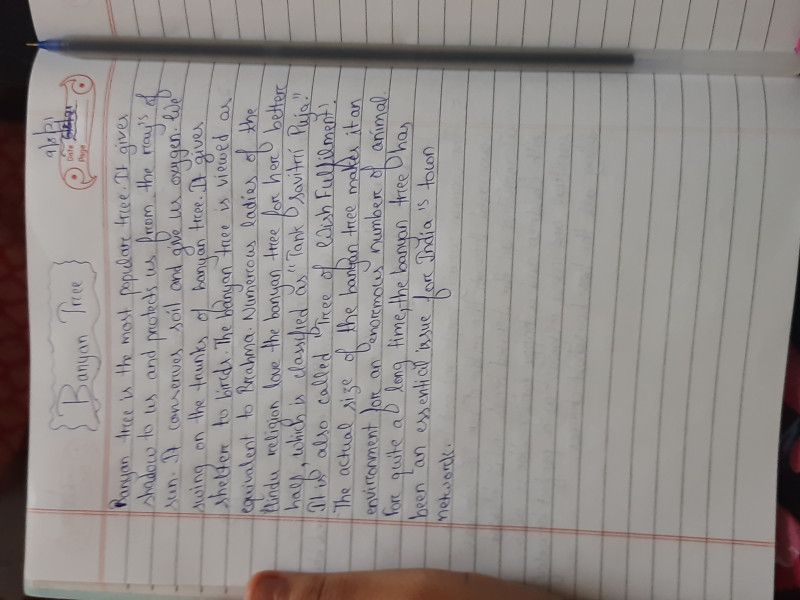 9/8/21
Date
Page
Banyan Tree
Banyan tree is the most populare tree. It gives
shadow to us and protects us from the ray's of
sun. It conserves soil and give us oxygen. We
swing on the trunks of banyan tree. It gives
sheltere to birds. The banyan tree is viewed as
equivalent to Brahma. Numerous ladies of the
Hindu religion love the banyan tree for here bettere
half, which is classified as "Tank Savitri Puja."
It is also called 'Tree of Wish Fulfilment'.
The actual size of the banyan tree makes it an
environment for an enormous number of animal.
Fore quite a long time, the banyan tree has
been an essential issue fore India is town
networks.